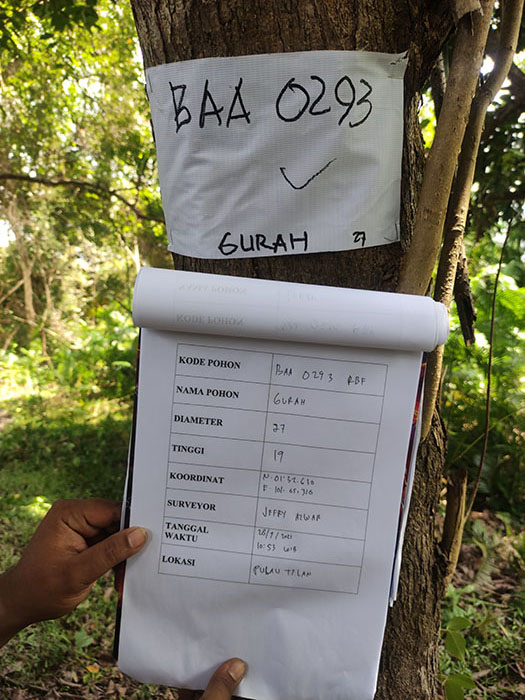 BAA 0293
GURAH 27
KODE POHON BAA 0293 RBF
NAMA POHON GURAH
DIAMETER 27
TINGGI 19
KOORDINAT N: 01.32.630
E 101.05.310
SURVEYOR JEFRY AZWAR
TANGGAL 28/7/2021
WAKTU 10:53 WIB
LOKASI PULAU TILAN